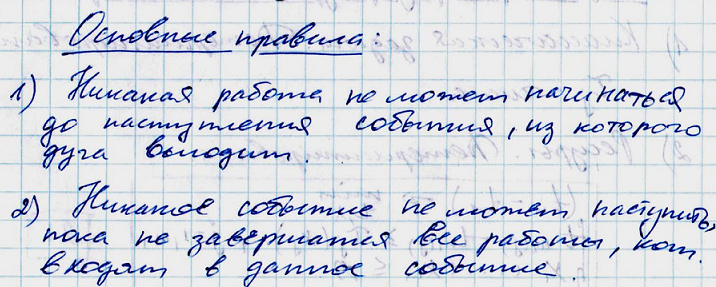 Основные правила:
1) Никакая работа не может начинаться
до наступления события, из которого
дуга выходит.
2) Никакое событие не может наступить,
пока не завершатся все работы, кот.
входят в данное событие.